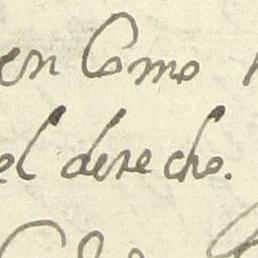 en Como
el derecho.